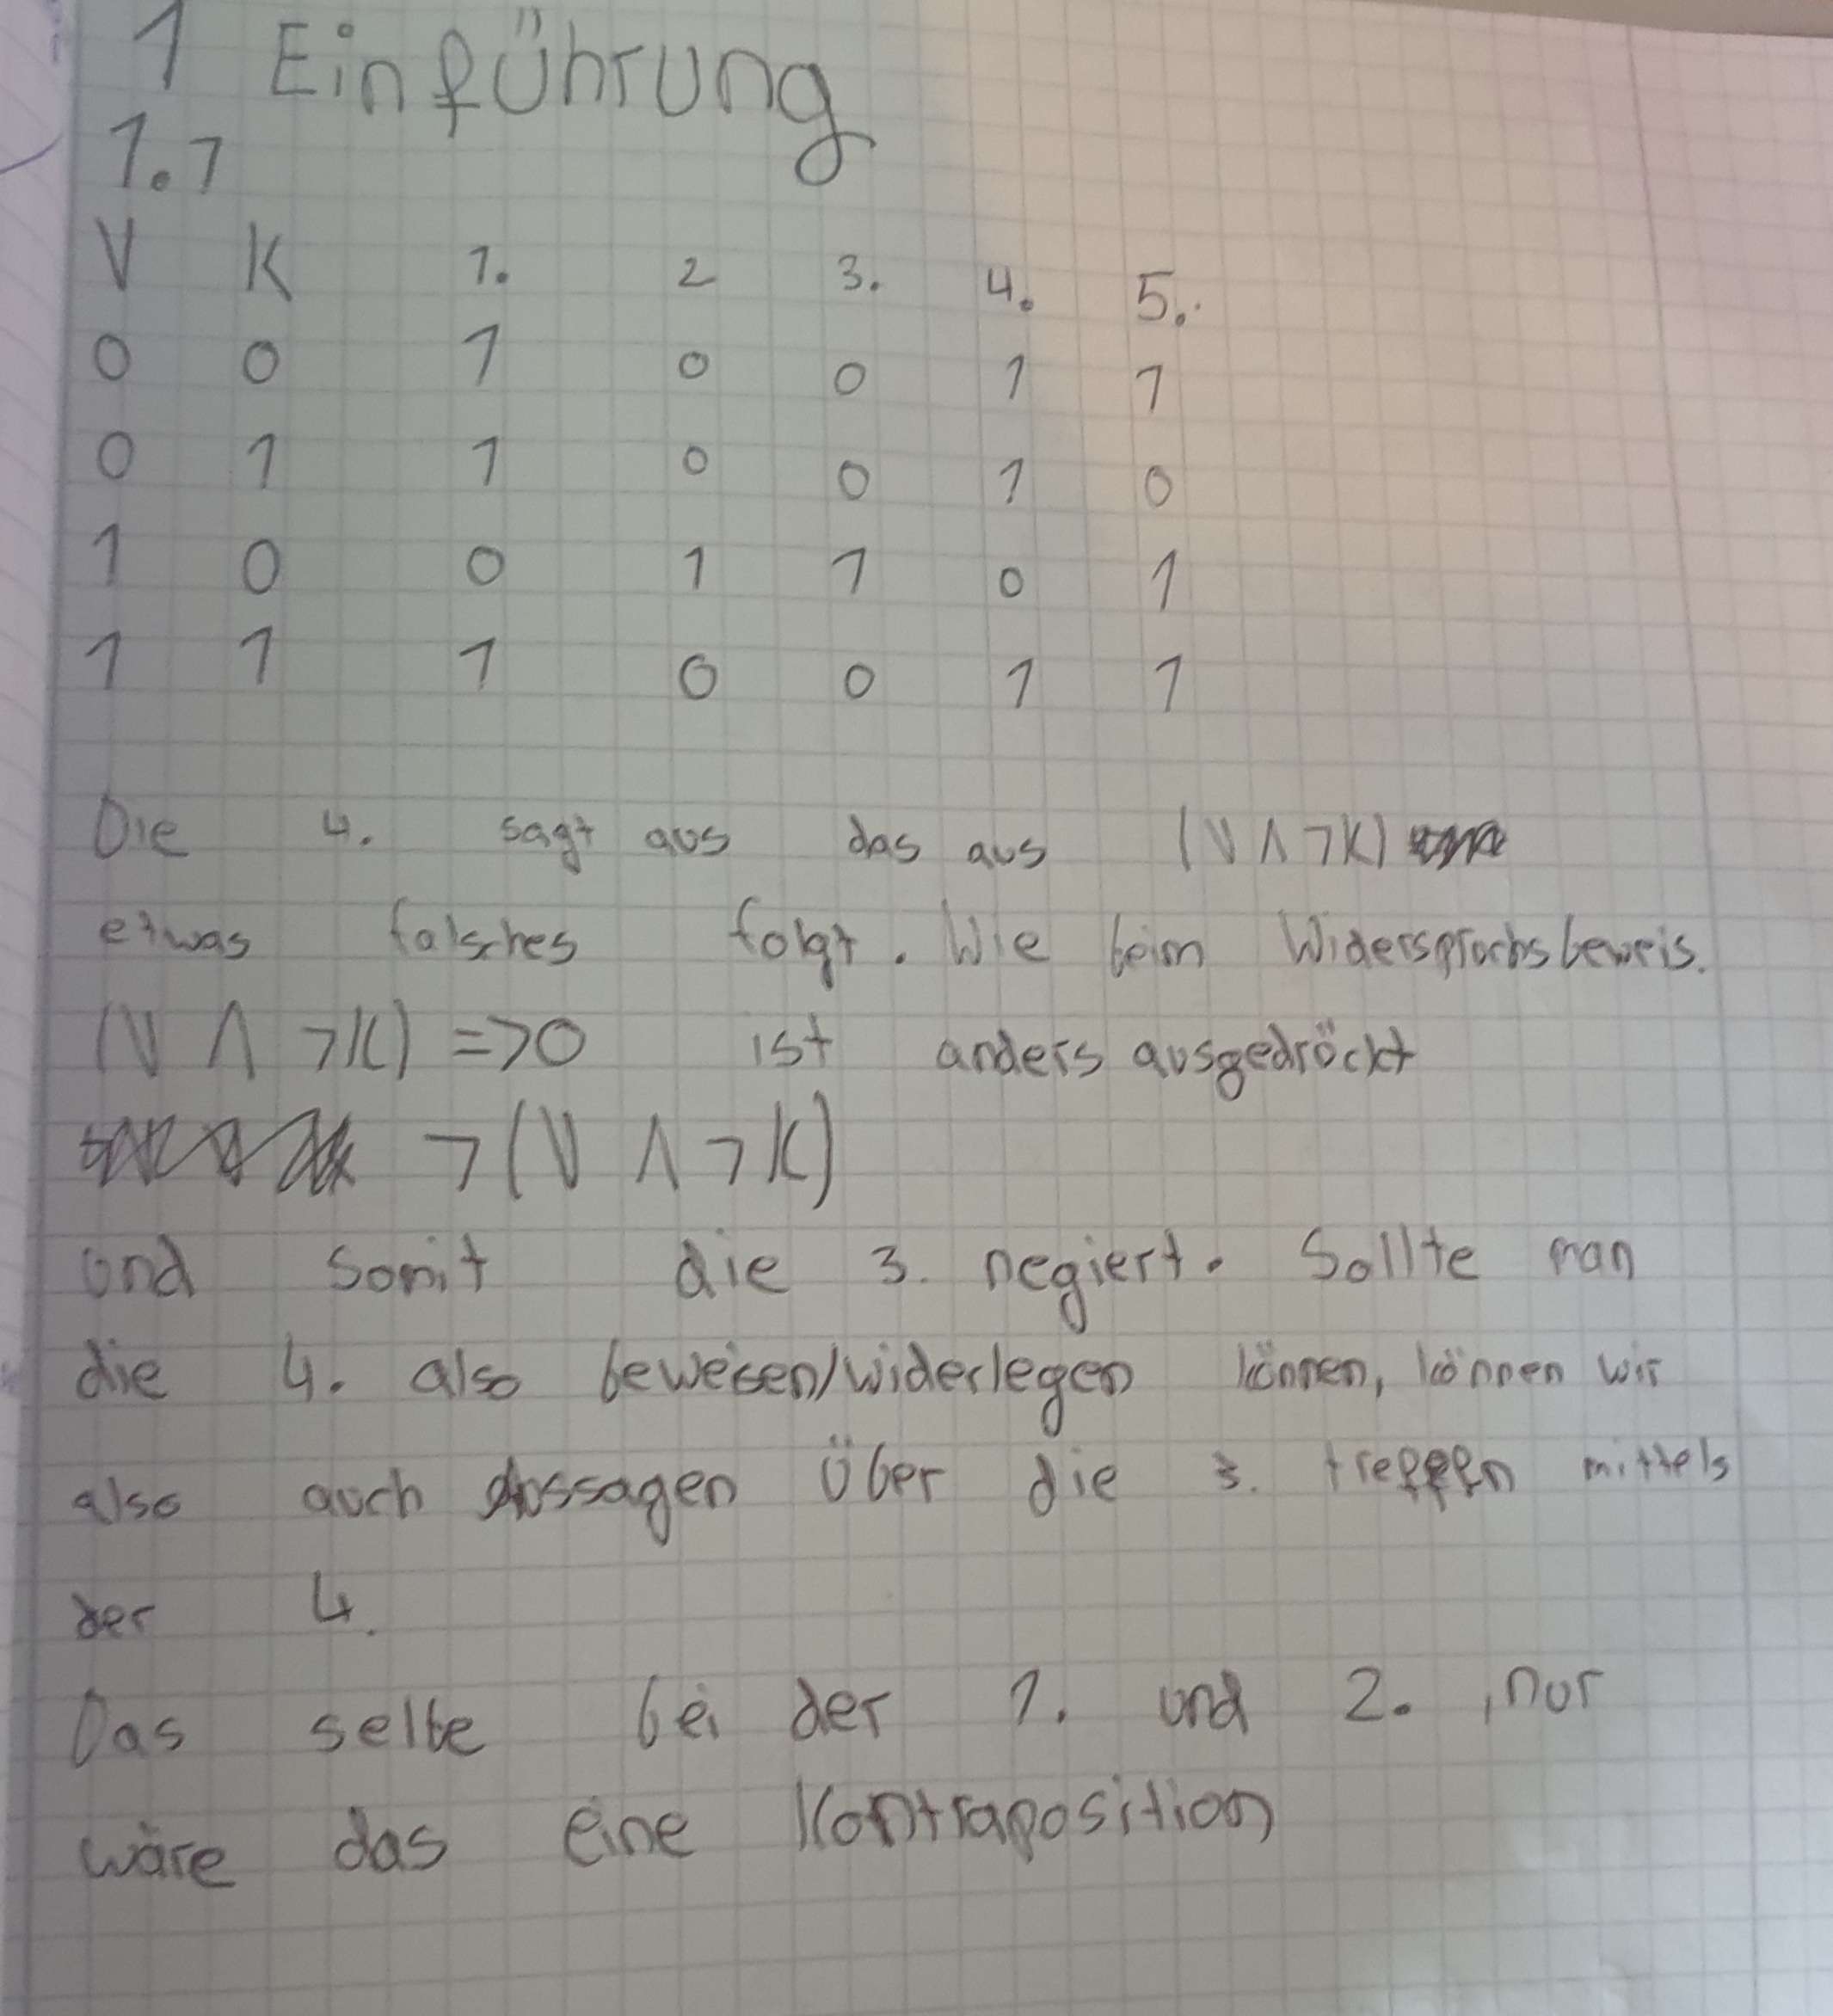 1 Einführung
1.1
V K 1. 2 3. 4. 5.
0 0 1 0 0 1 1
0 1 1 0 0 1 0
1 0 0 1 1 0 1
1 1 1 0 0 1 1
Die 4. sagt aus das aus (V ∧ ¬K)
etwas falsches folgt. Wie beim Widerspruchsbeweis.
(V ∧ ¬K) => 0 ist anders ausgedrückt
¬(V ∧ ¬K)
und somit die 3. negiert. Sollte man
die 4. also beweisen/widerlegen können, können wir
also auch Aussagen über die 3. treffen mittels
der 4.
Das selbe bei der 1. und 2., nur
wäre das eine Kontraposition